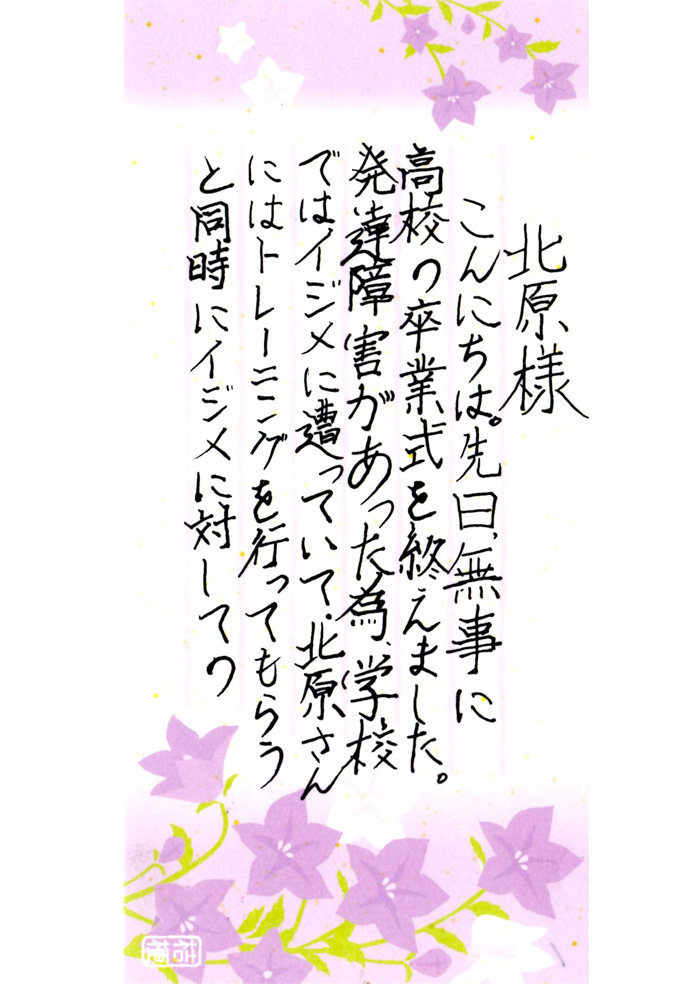 北原様
こんにちは。先日、無事に
高校の卒業式を終えました。
発達障害があった為、学校
ではイジメに遭っていて、北原さん
にはトレーニングを行ってもらう
と同時にイジメに対しての